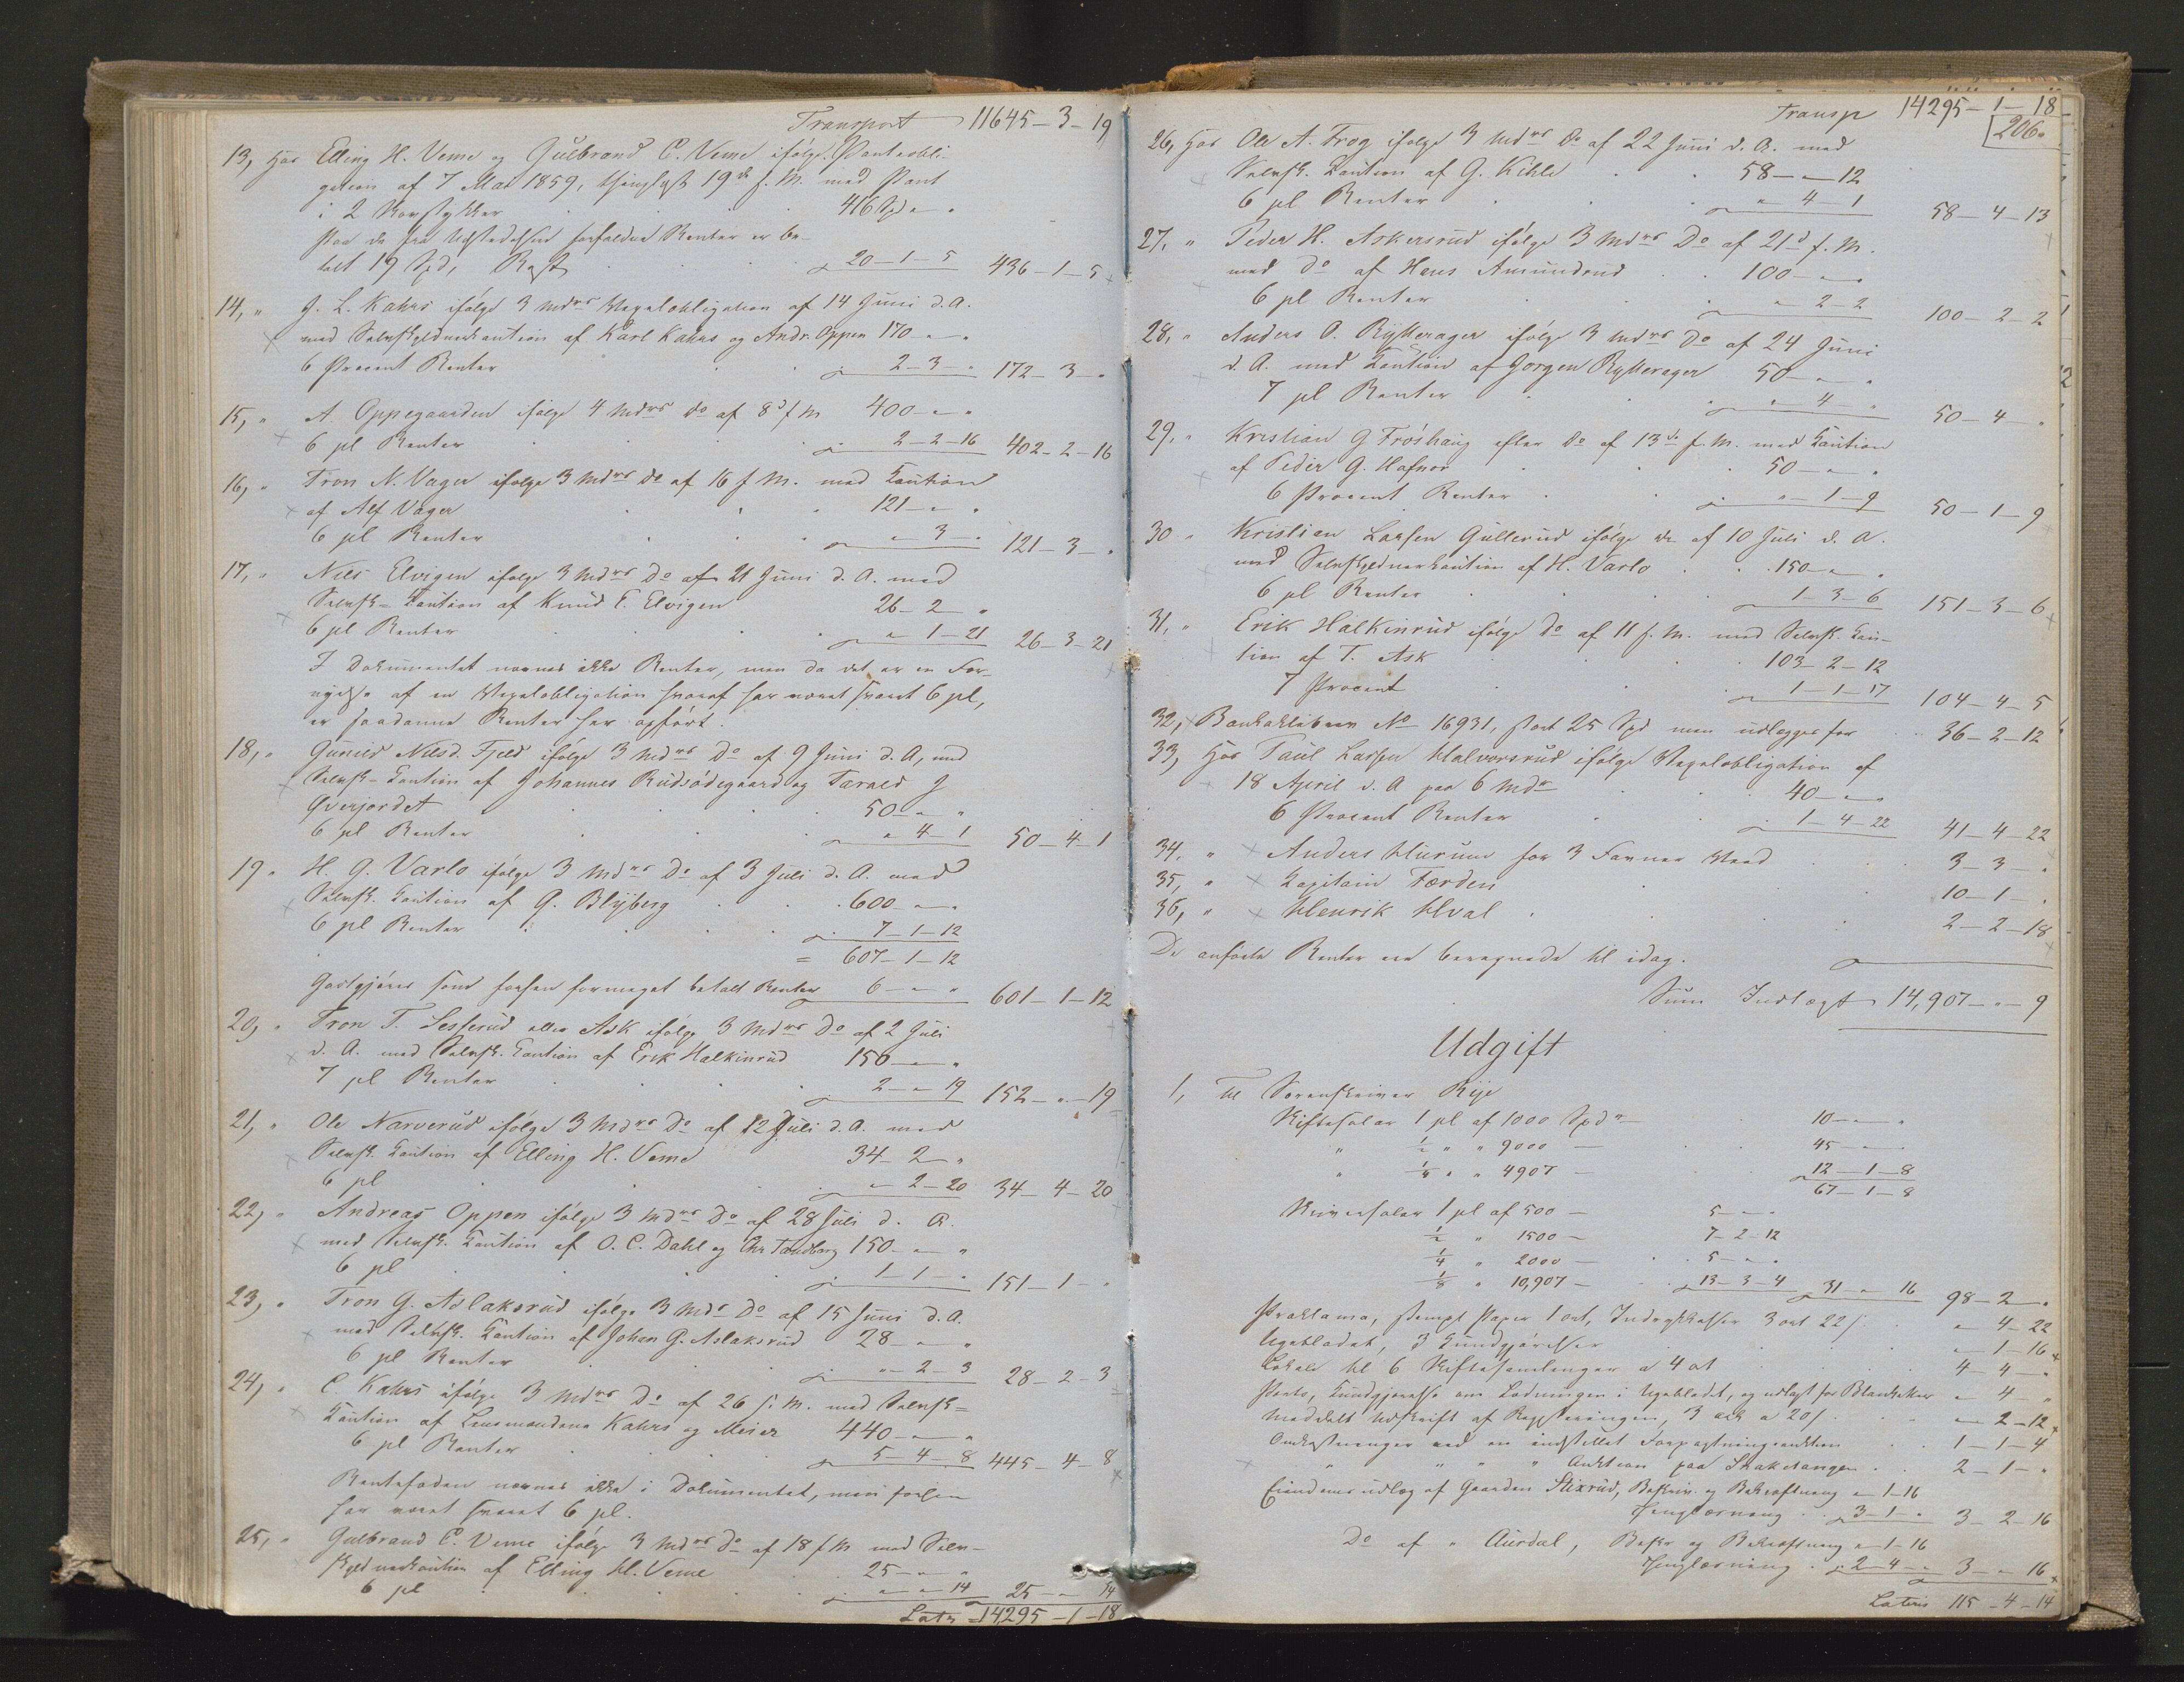 Transport 11645-3-19
13, Hos Elling H. Veme og Gulbrand C. Veme ifölge Panteobli-
gation af 7 Mai 1859, thinglyst 19de s. M. med Pant
i 2 Horstykker 416 Spd " "
Paa de fra Udstedelsen forfaldne Renter er be-
talt 19 Spd, Rest 20-1-5 436-1-5
14, " G. L. Kahrs ifölge 3 Mdrs Vexelobligation af 14 Juni d. A.
med Selvskyldnerkaution af Karl Kahrs og Andr. Oppen 170-"-"
6 Procent Renter 2-3-" 172-3-"
15, " A. Oppegaarden ifölge 4 Mdrs do af 8d s. M 400-"-"
6 pCt Renter 2-2-16 402-2-16
16, " Tron N. Vager ifölge 3 Mdrs do af 16 s. M. med Kaution
af Alf Vager 121-"-"
6 pCt Renter "-3-" 121-3-"
17, " Nils Elvigen ifölge 3 Mdrs Do af 21 Juni d. A. med
Selvsk-Kaution af Knud T. Elvigen 26-2-"
6 pCt Renter "-1-21 26-3-21
I Dokumentet nævnes ikke Renter, men da det er en For-
nyelse af en Vexelobligation hvoraf har været svaret 6 pCt,
er saadanne Renter her opfört.
18, " Gunild Nilsd. Fjeld ifölge 3 Mdrs Do af 9 Juni d. A, med
Selvsk-Kaution af Johannes Rudsödegaard og Tarald G
Øverjordet 50-"-"
6 pCt Renter "-4-1 50-4-1
19 " H. G. Varlo ifölge 3 Mdrs Do af 3 Juli d. A. med
Selvsk. Kaution af G. Blyberg 600-"-"
6 pCt Renter 7-1-12
= 607-1-12
Godtgjöres som forhen formeget betalt Renter 6-"-" 601-1-12
20, " Tron T. Sesserud eller Ask ifölge 3 Mdrs Do af 2 Juli
d. A. med Selvsk. Kaution af Erik Halkinrud 150-"-"
7 pCt Renter 2-"-19 152-"-19
21, " Ole Narverud ifölge 3 Mdrs Do af 12 Juli d. A. med
Selvsk. Kaution af Elling H. Veme 34-2-"
6 pCt "-2-20 34-4-20
22, " Andreas Oppen ifölge 3 Mdrs Do af 28 Juli d. A.
med Selvsk. Kaution af O. C. Dahl og Chr Tandberg 150-"-"
6 pCt 1-1-" 151-1-"
23, " Tron G. Aslaksrud ifölge 3 Mdrs Do af 15 Juni d. A.
med Selvsk. Kaution af Johan G. Aslaksrud 28-"-"
6 pCt Renter "-2-3 28-2-3
24, " C. Kahrs ifölge 3 Mdrs Do af 26 s. M. med Selvsk-
Kaution af Lensmændene Kahrs og Meier 440-"-"
6 pCt Renter 5-4-8 445-4-8
Rentefoden nævnes ikke i Dokumentet, men forhen
har været svaret 6 pCt.
25, " Gulbrand C. Veme ifölge 3 Mdrs do af 18 s M med Selv-
skyldnerkaution af Elling H. Veme 25-"-"
6 pCt "-"-14 25-"-14
Lats = 14295-1-18
Transp 14295-1-18
206.
26, Hos Ole A. Frog ifölge 3 Mdrs Do af 22 Juni d. A. med
Selvsk. Kaution af G. Kihle 58-"-12
6 pCt Renter "-4-1 58-4-13
27, " Peder H. Askersrud ifölge 3 Mdrs Do af 21d s. M.
med do af Hans Amundrud 100-"-"
6 pCt Renter "-2-2 100-2-2
28, " Anders O. Rytterager ifölge 3 Mdrs Do af 24 Juni
d. A. med Kaution af Jorgen Rytterager 50-"-"
7 pCt Renter "-4-" 50-4-"
29, " Kristian G Fröshaug efter Do af 13de s. M. med Kaution
af Peder G. Hafnor 50-"-"
6 Procent Renter "-1-9 50-1-9
30 " Kristian Larsen Gullerud ifölge do af 10 Juli d. A.
med Selvskyldnerkaution af H. Varlo 150-"-"
6 pCt Renter 1-3-6 151-3-6
31, " Erik Halkinrud ifölge do af 11 s. M. med Selvsk. Kau-
tion af T. Ask 103-2-12
7 Procent 1-1-17 104-4-5
32, Bankaktiben No 16931, stort 25 Spd men udlægges for 36-2-12
33, Hos Paul Larsen Halvorsrud ifölge Vexelobligation af
18 April d. A paa 6 Mdr 40-"-"
6 Procent Renter 1-4-22 41-4-22
34, " Anders Hurum for 3 Favner Veed 3-3-"
35, " Kapitain Færden 10-1-"
36, " Henrik Hval 2-2-18
De anförte Renter ere beregnede til idag.
Sum Indtægt 14,907-"-9
Udgift
1, Til Sorenskriver Rye
Skiftesalær 1 pCt af 1000 Spd 10-"-"
" 1/2 " " 9000 - 45-"-"
" 1/4 " " 4907 - 12-1-8
67-1-8
Skriversalær 1 pCt af 500 - 5-"-"
1/2 " 1500 - 7-2-12
1/4 " 2000 - 5-"-"
1/8 " 10,907 - 13-3-4 31-"-16 98-2-"
Proklama, stempt Papir 1 ort, Indrykkelser 3 ort 22 s "-4-22
Ugebladet, 3 Kundgjörelser "-1-16
Lokale til 6 Skiftesamlinger a 4 ort 4-4-"
Porto, Kundgjørelse om Lodningen i Ugebladet, og udlagt for Blanketter "-4-"
Meddelt Udskrift af Registeringen, 3 ark a 20 s. "-2-12
Omkostninger ved en indstillet Forpagtningsauktion 1-1-4
" " " " Auktion paa Staketangen 2-1-"
Eiendomsudlæg af Gaarden Stixrud, Beskriv. og Bekræftning "-1-16
Thinglæsning 3-1-" 3-2-16
Do af " Aurdal, Beskr og Bekræftning "-1-16
Thinglæsning 2-4-" 3-"-16
Lateris 115-4-14